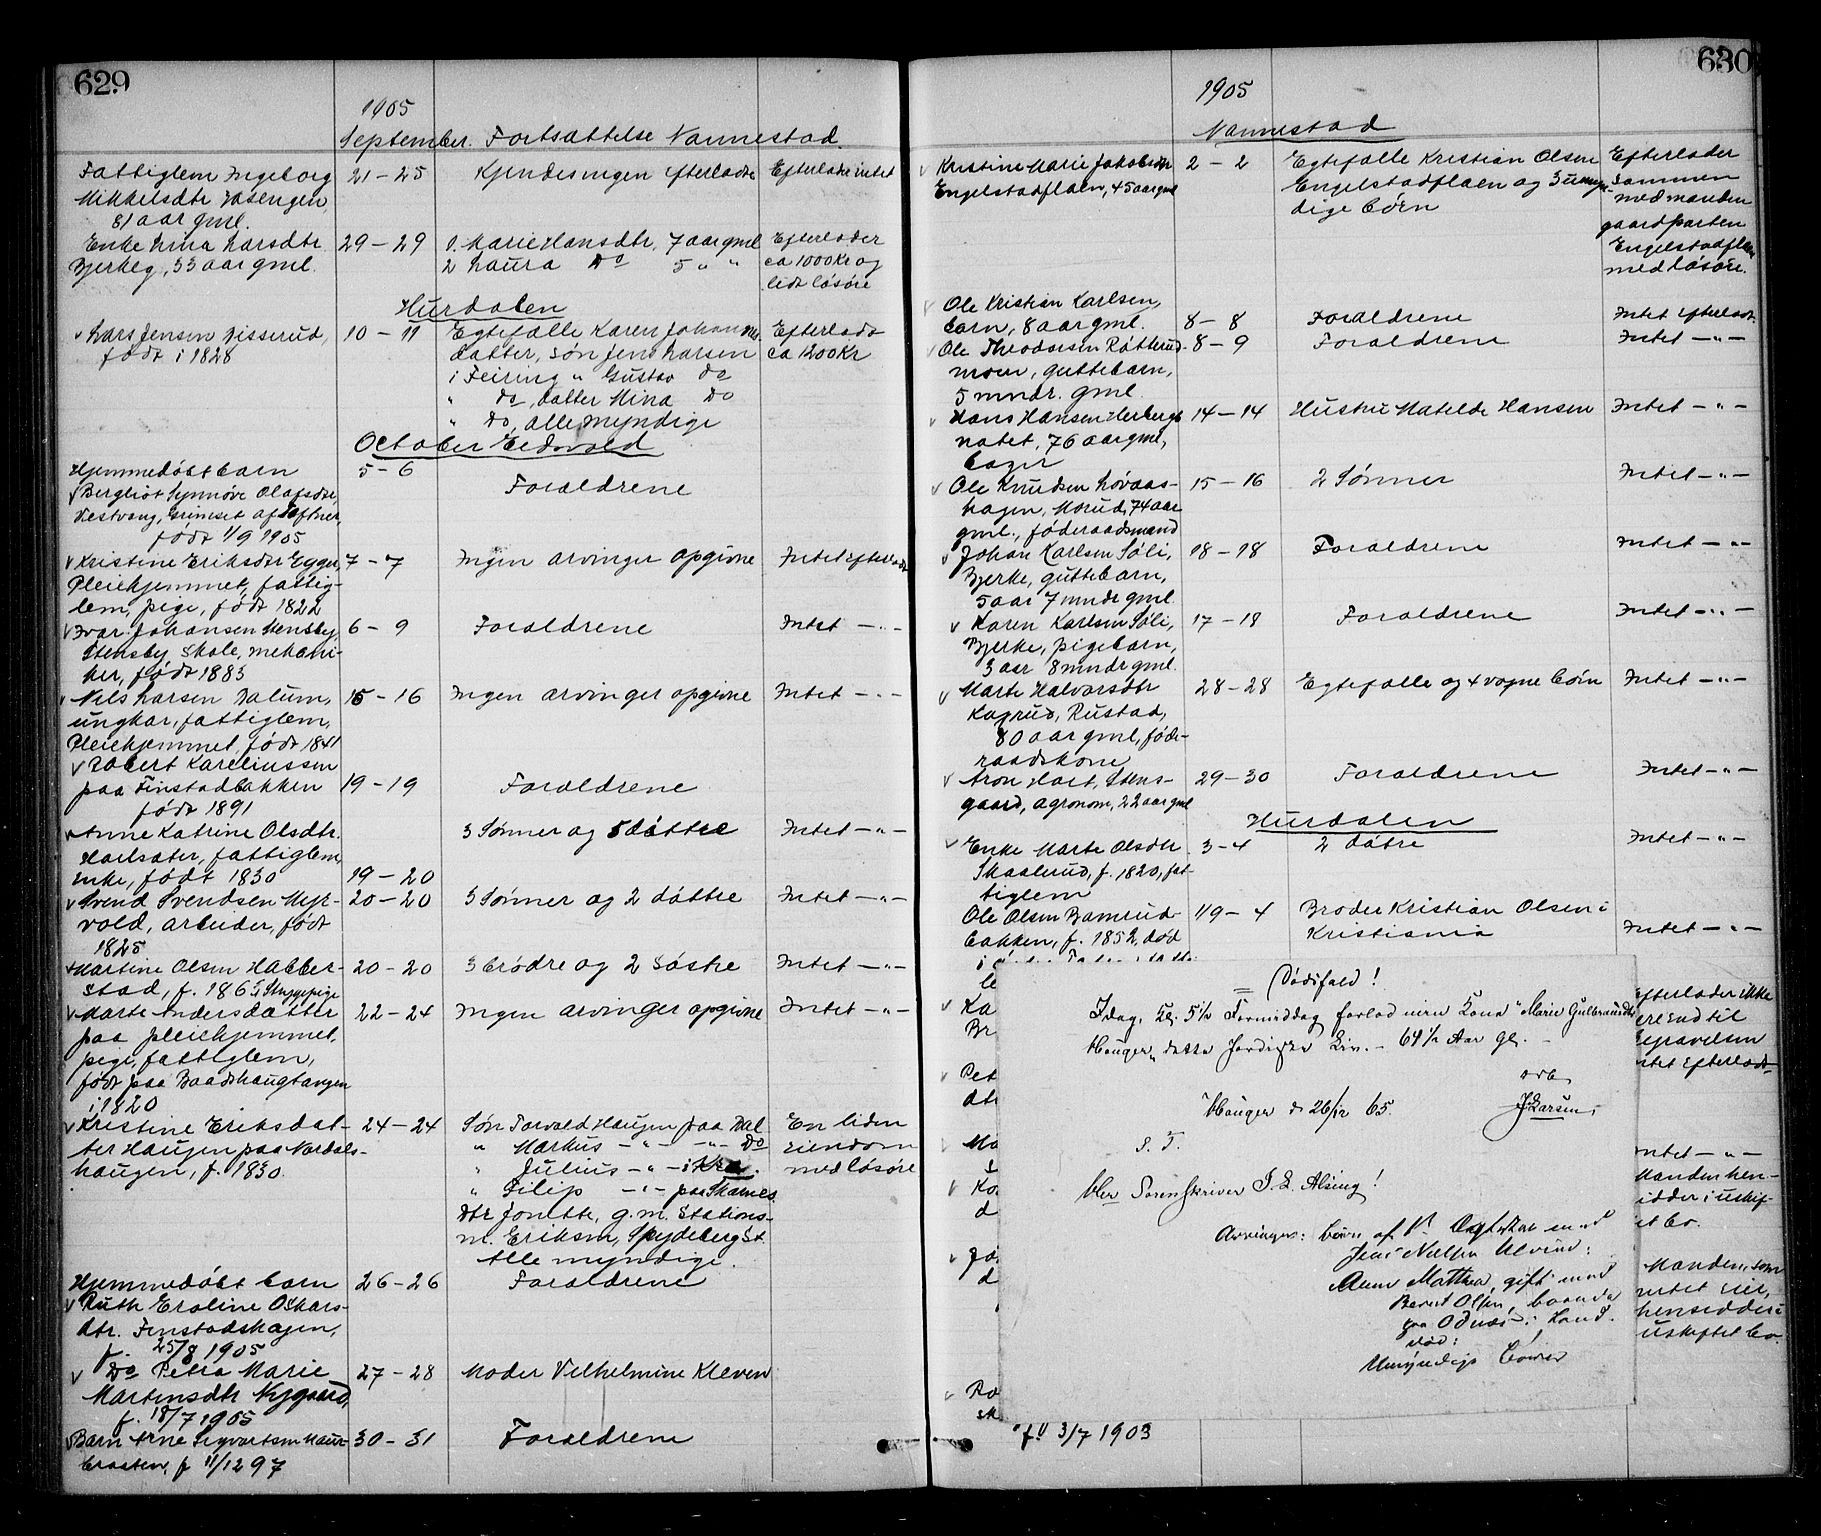 629
1905
September. Fortsættelse Nannestad.
Fattiglem Ingeborg 21-25 Kjendes ingen efterladte Efterladte intet
Mikkelsdtr Aasengen,
81 aar gml.
Enke Lina Larsdtr 29-29 1. Marie Hansdtr, 7 aar gml Efterlader
Bjerkeg, 33 aar gml. 2 Laura Do 5 " " ca 1000 Kr og
lidt løsøre
Hurdalen
Lars Jensen Gisserud, 10-11 Egtefælle Karen Johannes- Efterladt
født i 1828 datter, Søn Jens Larsen ca 1200 Kr
i Feiring " Gustav do
" do, datter Mina Do
" Do, alle myndige
October Eidsvold
Hjemmedøbt barn 5-6 Forældrene
Bergliot Synnøve Olafsdtr
Vestvang,
født 1/9 1905
Kristine Eriksdtr Egger, 7-7 Ingen arvinger opgivne Intet efterladt
Pleiehjemmet, fattig-
lem, pige, født 1822
Ivar Johansen Stensby, 6-9 Forældrene Intet -"-
Stensby Skole, mekani-
ker, født 1883
Nils Larsen Dalum, 15-16 Ingen arvinger opgivne Intet -"-
ungkar, fattiglem,
Pleiehjemmet, født 1841
Robert Kareliussen
paa Finstadbakken 19-19 Forældrene
født 1891
Anne Katrine Olsdtr. 3 Sønner og 5 døttre Intet -"-
Hailsæter, fattiglem,
Enke, født 1830 19-20
Svend Svendsen Myr- 20-20 3 Sønner og 2 døttre Intet -"-
vold, arbeider, født
1825
Martine Olsen Habber- 20-20 3 brødre og 2 Søstre Intet -"-
stad, f. 1865,
Marte Andersdatter 22-24 Ingen arvinger opgivne Intet -"-
paa pleiehjemmet,
pige, fattiglem,
født paa Baadshaugtangen
i 1820
Kristine Eriksdat- 24-24 Søn Torvald Haugen paa Dal En liden
ter Haugen paa Nordals- " Markus -"- -"- Do Eiendom
haugen, f. 1830. " Julius -"- i Kra. med løsøre
" Filip -"- paa Skarnes
Dtr Jonette, g. m. Stations-
m. Eriksen, Spydeberg St.
Alle myndige.
Hjemmedøbt barn 26-26 Forældrene
Ruth Eraline Oskars-
dtr. Finstadshagen,
f. 25/8 1905
Do Petra Marie 27-28 Moder Vilhelmine Kleven
Martinsdtr Nygaard,
f. 18/7 1905
Barn Arne Sigvartsen Maur- 30-31 Forældrene
braaten, f 11/12 97
630
1905
Nannestad
Kristine Marie Jakobsdtr 2-2 Egtefælle Kristian Olsen Efterlader
Engelstadflaen, 45 aar gml Engelstadflaen og 3 umyn- sammen
dige børn med manden
gaardparten
Engelstadflaen
med løsøre.
Ole Kristian Karlsen,
barn, 8 aar gml. 8-8 Forældrene Intet Efterladt.
Ole Theodorsen Røtterud- 8-9 Forældrene Intet -"-
moen, guttebarn,
5 mndr. gml.
Hans Hansen Herbergs- 14-14 Hustru Matelde Hansen Intet -"-
natet, 76 aar gml,
bager
Ole Knudsen Løvaas- 15-16 2 Sønner Intet -"-
hagen, Morud, 74 aar
gml., føderaadsmand
Johan Karlsen Søli, 18-18 Forældrene Intet -"-
Bjerke, guttebarn,
5 aar 7 mndr gml.
Karen Karlsen Søli, 17-18 Forældrene Intet -"-
Bjerke, pigebarn,
3 aar 8 mndr gml.
Marte Halvorsdtr 28-28 Egtefælle og 4 voxne børn Intet -"-
Kagrud, Rustad,
80 aar gml, føde-
raadskone
Aron Hoel, Stens- 29-30 Forældrene Intet -"-
gaard, agronom, 22 aar gml
Hurdalen
Enke Marte Olsdtr 3-4 2 døtre Intet -"-
Skaalerud, f. 1820, fat-
tiglem
Ole Olsen Bamrud- 1/9-4 Broder Kristian Olsen i
bakken, f. 1852, død Kristiania Intet -"-
Dødsfald!
Idag, Kl. 5½ Formiddag forlod min Kona "Marie Gulbrandsdtr
Hauger" dette Jordiske Liv. - 64½ Aar Gl. -
Hauger d 26/12 65. ærb
J Larsen
S. T.
Her Sorenskriver Alsing!
Arvinger: Børn af 1st Ægteskab
Anne Mathea, gift med
Bernt Olsen,
paa Odnæs i Land.
død:
Umyndige Børn
Efterlader ikke
Intet Efterladt
Intet -"-
Manden hen-
sidder i uskif-
tet bo.
Manden, som
intet eier,
hensidder i
uskiftet bo
f. 3/7 1903